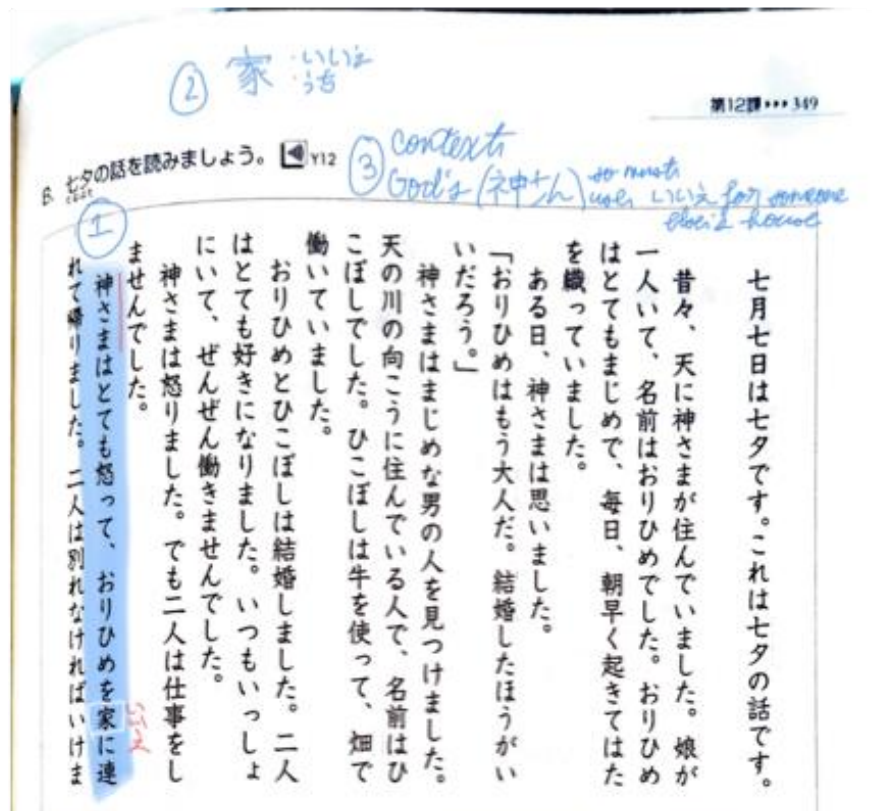 ② 家 :いいえ
・うち
第12課•••349
B. 七夕の話を読みましょう。 Y12
たなばた
③ context:
God's (神さん) so must
use いいえ for someone
else's house
①
七月七日は七夕です。これは七夕の話です。
昔々、天に神さまが住んでいました。娘が
一人いて、名前はおりひめでした。おりひめ
はとてもまじめで、毎日、朝早く起きてはた
を織っていました。
ある日、神さまは思いました。
「おりひめはもう大人だ。結婚したほうがい
いだろう。」
神さまはまじめな男の人を見つけました。
天の川の向こうに住んでいる人で、名前はひ
こぼしでした。ひこぼしは牛を使って、畑で
働いていました。
おりひめとひこぼしは結婚しました。二人
はとても好きになりました。いつもいっしょ
にいて、ぜんぜん働きませんでした。
神さまは怒りました。でも二人は仕事をし
ませんでした。
神さまはとても怒って、おりひめを家に連
いいえ
れて帰りました。二人は別れなければいけま